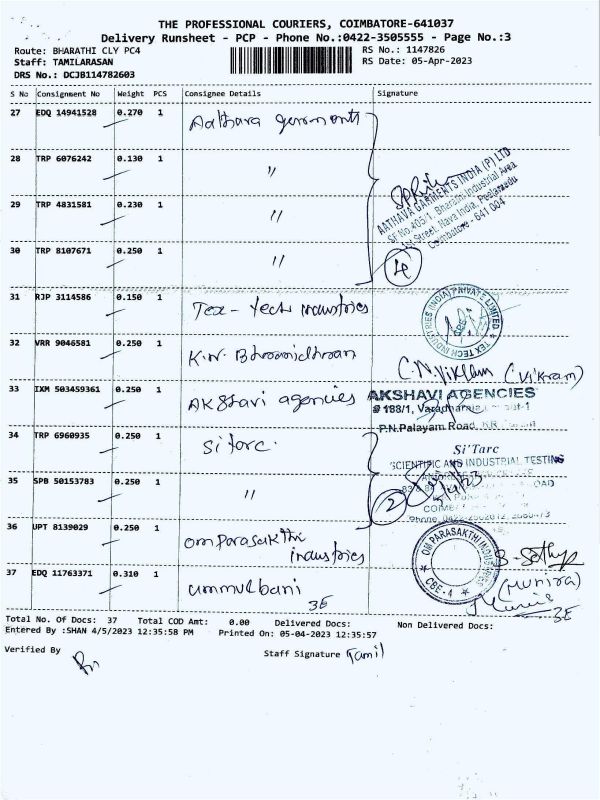 THE PROFESSIONAL COURIERS, COIMBATORE-641037
Delivery Runsheet - PCP - Phone No.:0422-3505555 - Page No.:3
Route: BHARATHI CLY PC4 RS No.: 1147826
Staff: TAMILARASAN RS Date: 05-Apr-2023
DRS No.: DCJB114782603
S No Consignment No Weight PCS Consignee Details Signature
27 EDQ 14941528 0.270 1 Aathava garments
28 TRP 6076242 0.130 1 "
29 TRP 4831581 0.230 1 "
AATHAVA GARMENTS INDIA (P) LTD
SF No.405/1, Bharathi Industrial Area
Street, Nava India, Peelamedu
Coimbatore - 641 004
30 TRP 8107671 0.250 1 " 4
31 RJP 3114586 0.150 1 Tex-Tech industries
TEX TECH INDUSTRIES (INDIA) PRIVATE LIMITED
32 VRR 9046581 0.250 1 K.N.
C.N. Viklam (Vikram)
33 IXM 503459361 0.250 1 Akshavi agencies
AKSHAVI AGENCIES
P.N.Palayam Road,
34 TRP 6960935 0.250 1 Sitarc.
Si'Tarc
SCIENTIFIC AND INDUSTRIAL TESTING
35 SPB 50153783 0.250 1 " 2
36 UPT 8139029 0.250 1 omparasakthi
industries
OM PARASAKTHI INDUSTRIES
CBE-4
37 EDQ 11763371 0.310 1 ummulbani
3E
(Munira)
3E
Total No. Of Docs: 37 Total COD Amt: 0.00 Delivered Docs: Non Delivered Docs:
Entered By :SHAN 4/5/2023 12:35:58 PM Printed On: 05-04-2023 12:35:57
Verified By Staff Signature Tamil